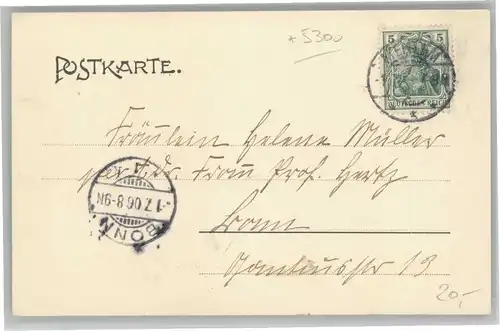 * 5300
POSTKARTE.
5 5
DEUTSCHES REICH
Fräulein Helene Müller
per Adr. Frau Prof. Hertz
Bonn
1.7.06.8-9N
BONN
13
20,-